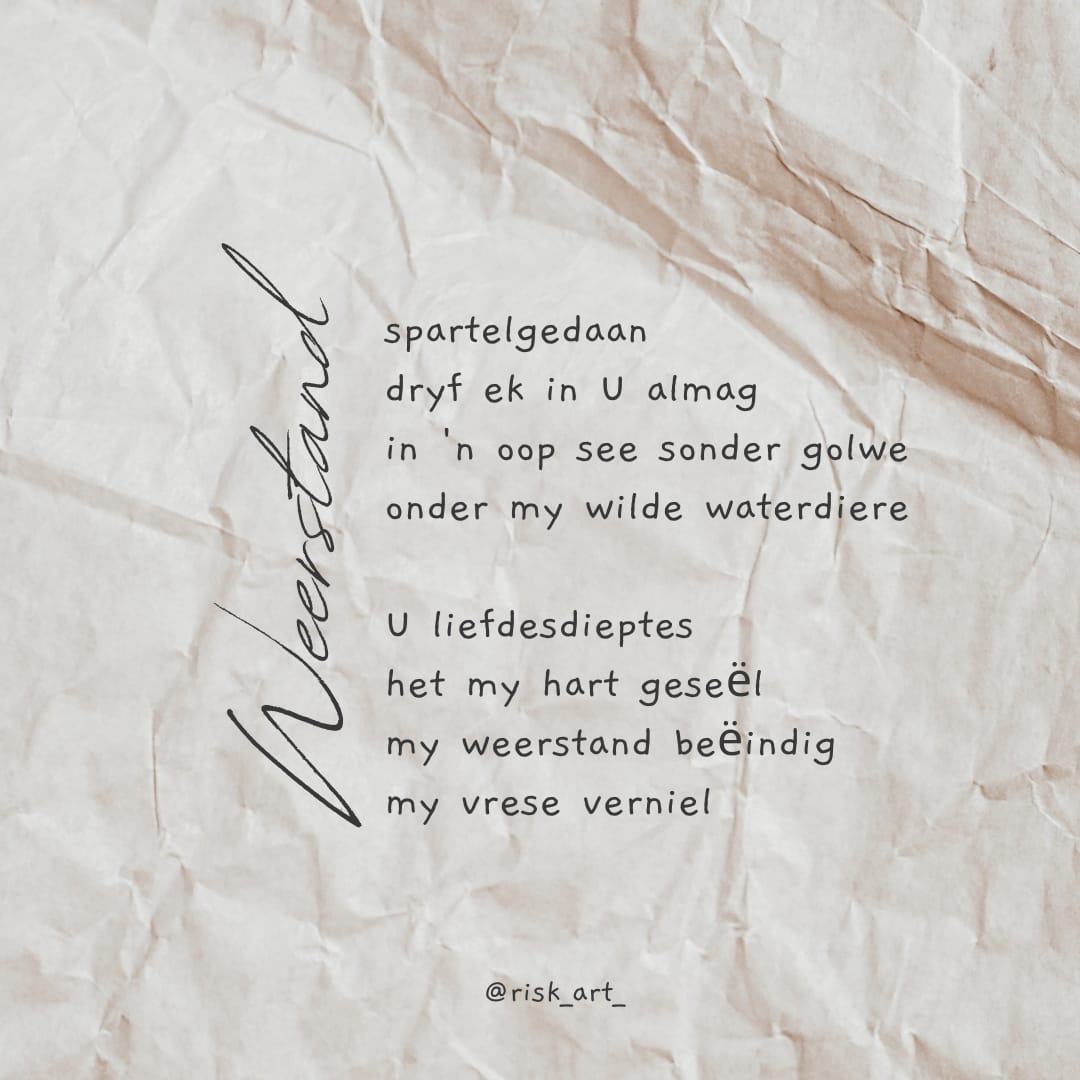 Weerstand
spartelgedaan
dryf ek in U almag
in 'n oop see sonder golwe
onder my wilde waterdiere
U liefdesdieptes
het my hart geseël
my weerstand beëindig
my vrese verniel
@risk_art_